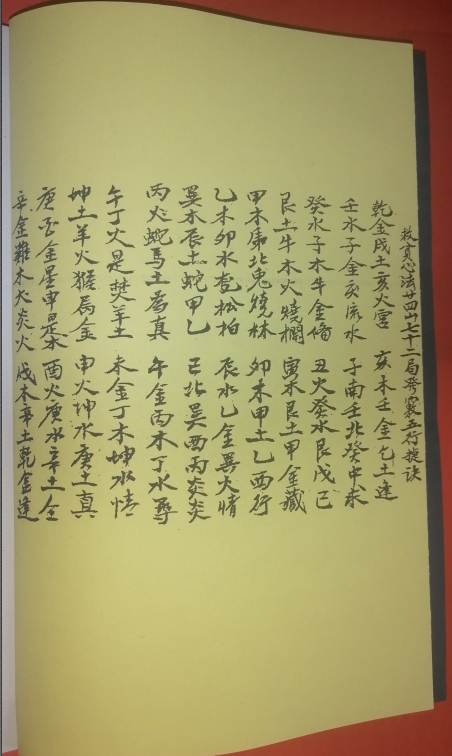 救貧心法廿四山七十二局旁竅五行掟訣
乾金戌土亥火宮 亥未壬金乞土逢
壬水子金亥流水 子南壬北癸中求
癸水子木牛金備 丑火癸水艮戊己
艮土牛木火燒欄 寅木艮土甲金藏
甲木庫北鬼燒林 卯未甲土乙酉行
乙木卯水卷松柏 辰水乙金巽火情
巽木辰土蛇甲乙 己北巽西丙炎炎
丙火蛇馬土為真 午金丙木丁水尋
午丁火是焚羊土 未金丁木坤水情
坤土羊火猴局金 申火坤水庚土真
庚 金星申是 酉火庚水辛土全
辛金雞木犬炎火 戌木辛土乾金逢